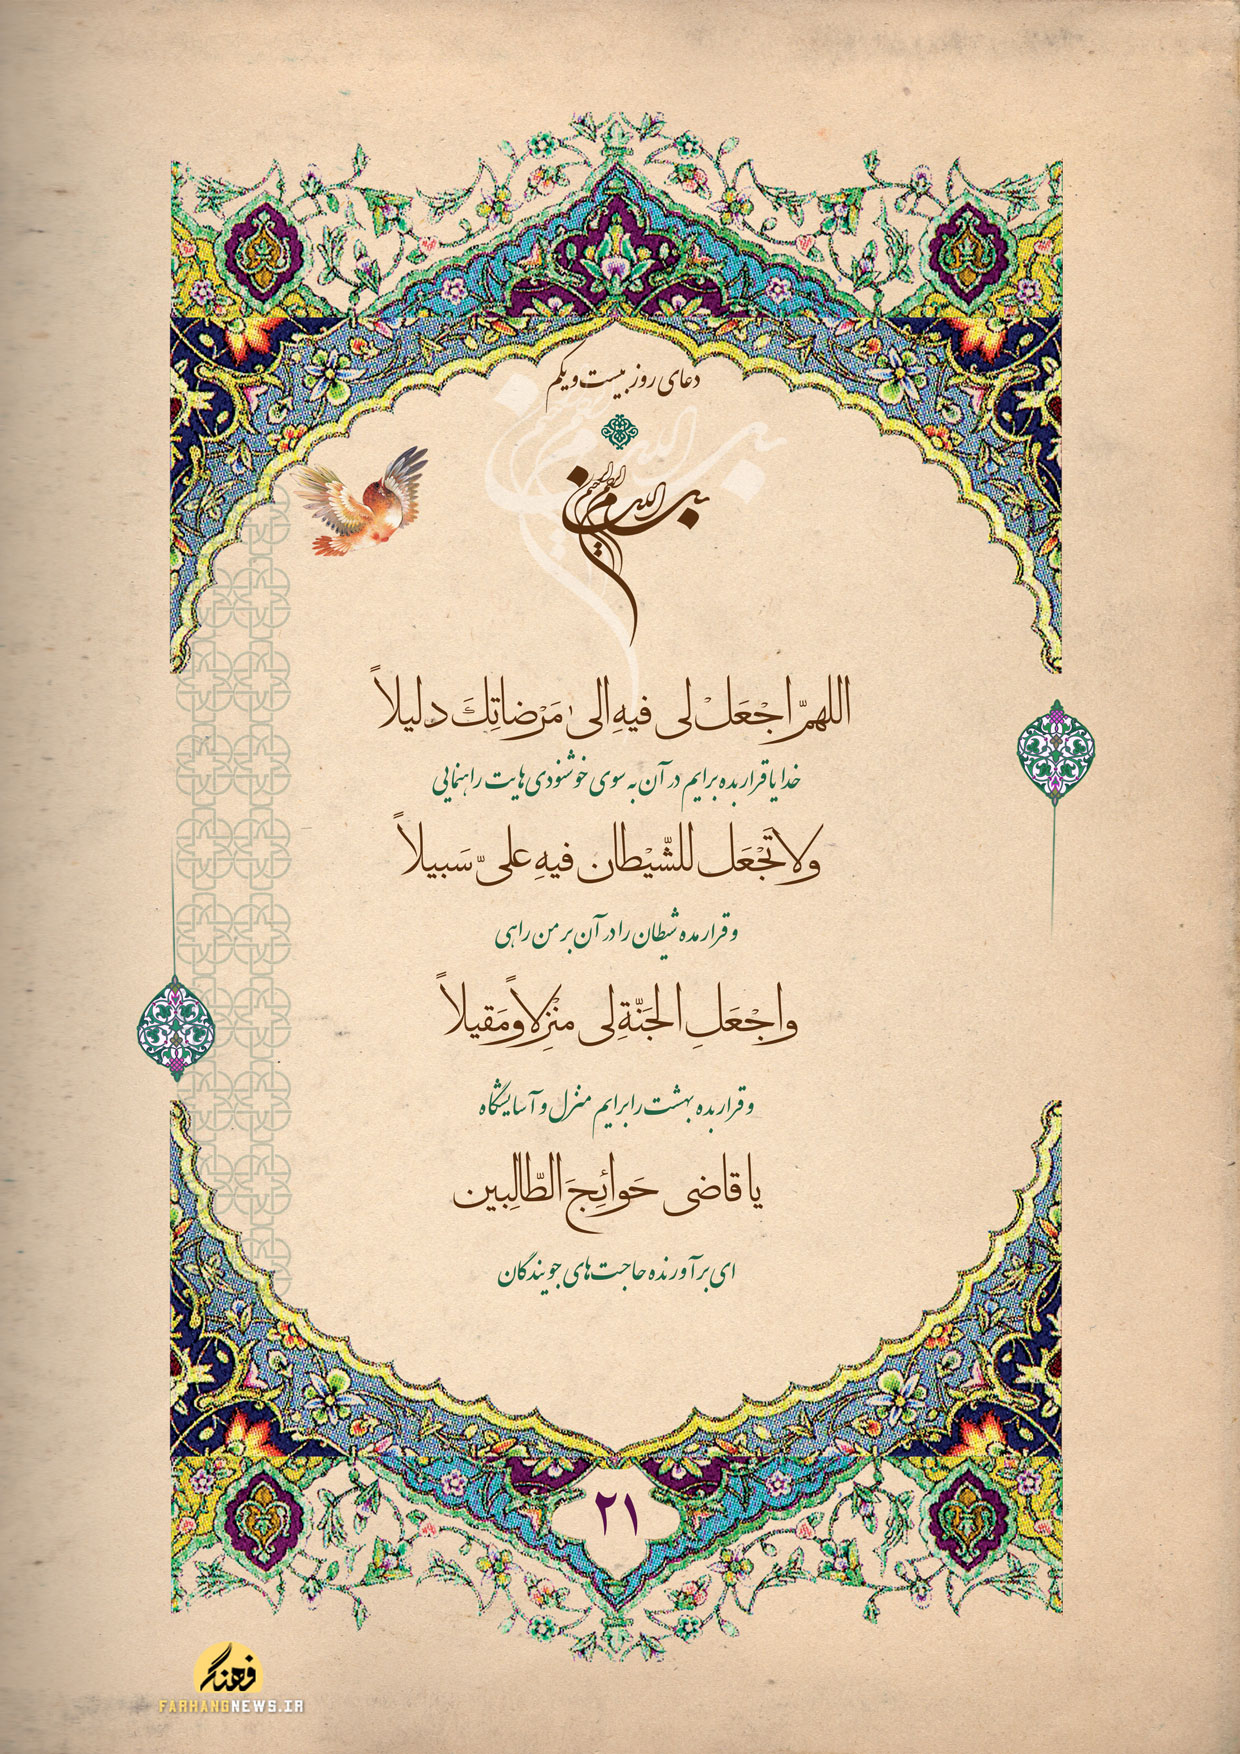 دعای روز بیست و یکم
بسم الله الرحمن الرحیم
اللهمّ اجْعَلْ لی فیهِ الیٰ مَرْضاتِكَ دلیلاً
خدایا قرار بده برایم در آن به سوی خوشنودی هایت راهنمایی
ولا تَجْعَل للشّیْطان فیهِ علیّ سَبیلاً
و قرار مده شیطان را در آن بر من راهی
واجْعَلِ الجَنّةَ لی منْزِلاً ومَقیلاً
و قرار بده بهشت را برایم منزل و آسایشگاه
یا قاضی حَوائِجَ الطّالِبین
ای برآورنده حاجت های جویندگان
۲۱
فرهنگ
FARHANGNEWS.IR